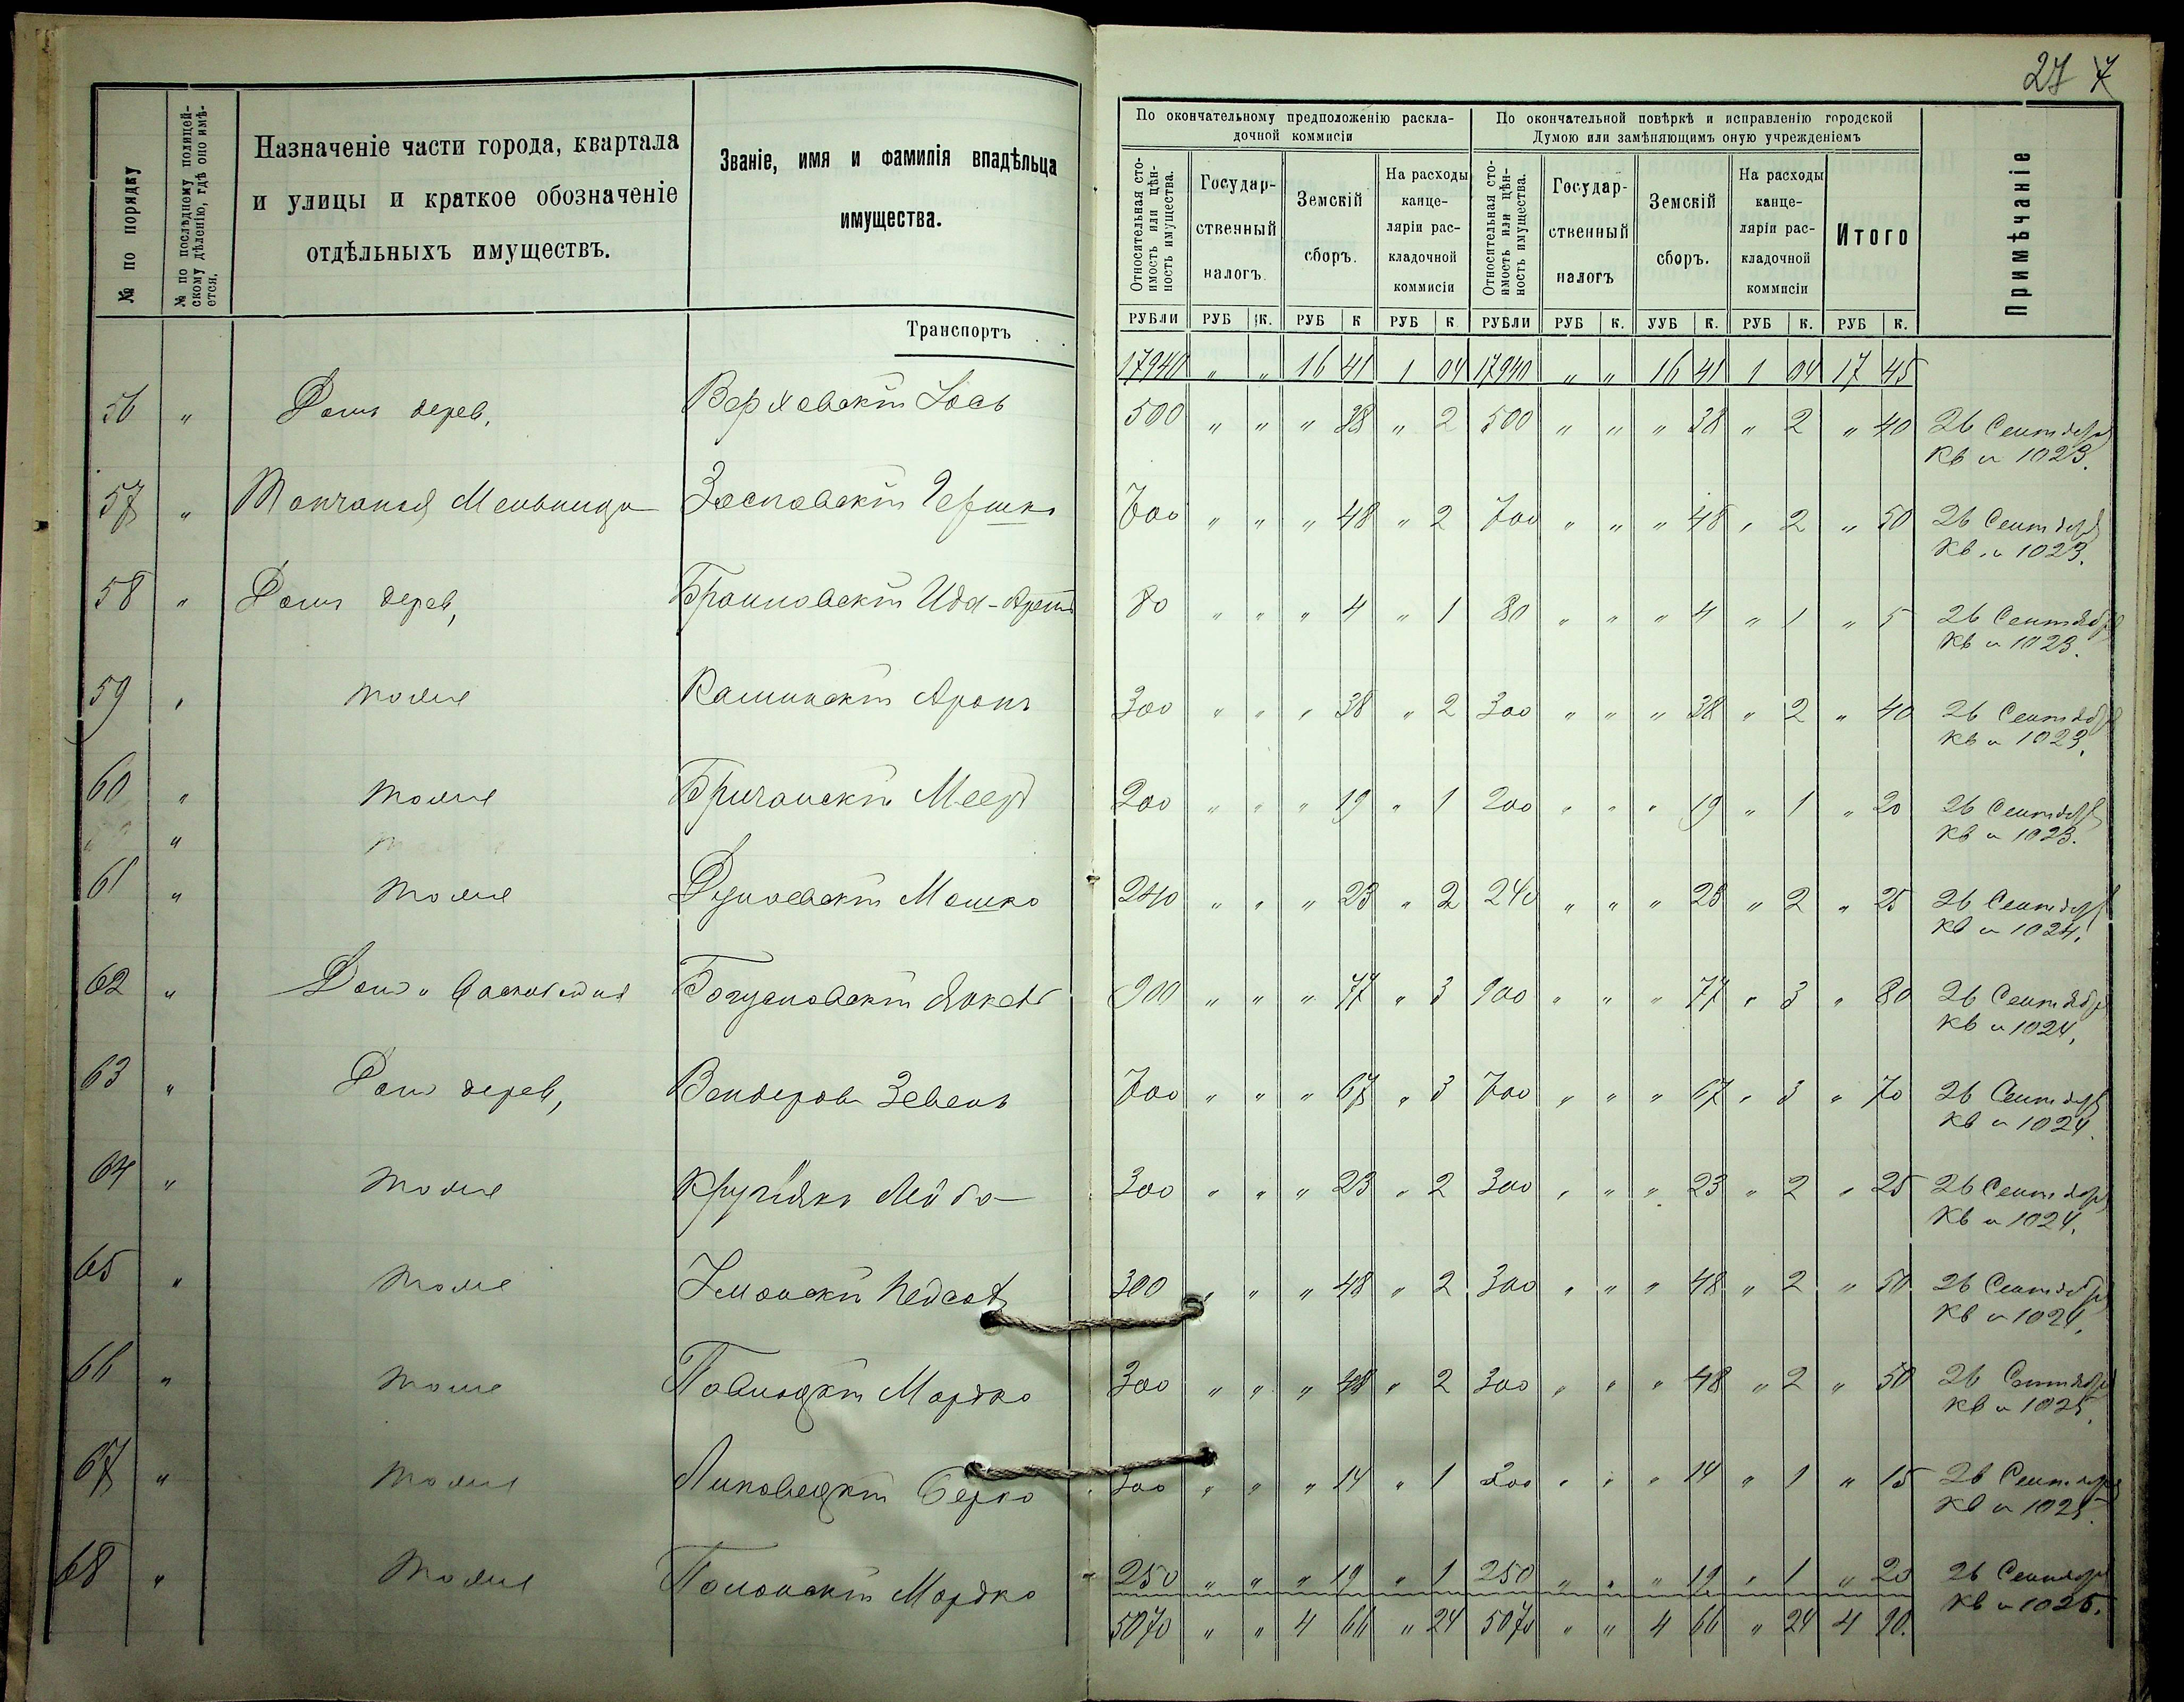 27 7
№ по порядку
№ по послѣдному полицей-
скому дѣленію, гдѣ оно имѣ-
ется.
Назначеніе части города, квартала
и улицы и краткое обозначеніе
отдѣльныхъ имуществъ.
Званіе, имя и фамилія владѣльца
имущества.
По окончательному предположенію раскла-
дочной коммисіи
По окончательной повѣркѣ и исправленію городской
Думою или замѣняющимъ оную учрежденіемъ
Относительная сто-
имость или цѣн-
ность имущества.
Государ-
ственный
налогъ.
Земскій
сборъ.
На расходы
канце-
ляріи рас-
кладочной
коммисіи
Относительная сто-
имость или цѣн-
ность имущества.
Государ-
ственный
налогъ
Земскій
сборъ.
На расходы
канце-
ляріи рас-
кладочной
коммисіи
Итого
Примѣчаніе
РУБЛИ РУБ К. РУБ К РУБ К РУБЛИ РУБ К. УУБ К. РУБ К. РУБ К.
Транспортъ . . 17940 " " 16 41 1 04 17940 " " 16 41 1 04 17 45
56 " Домъ дерев. Верховскій Іось 500 " " " 38 " 2 500 " " " 38 " 2 " 40 26 Сентября
Кв и 1023.
57 " Заславскій Гершко 700 " " " 48 " 2 700 " " " 48 " 2 " 50 26 Сентября
Кв. и 1023.
58 " Домъ дерев, Браиловскій 80 " " " 4 " 1 80 " " " 4 " 1 " 5 26 Сентября
Кв и 1023.
59 " тоже Каминскій Аронъ 300 " " " 38 " 2 300 " " " 38 " 2 " 40 26 Сентября
Кв и 1023.
60 " тоже Бричанскій Меер 200 " " " 19 " 1 200 " " " 19 " 1 " 20 26 Сентября
Кв и 1023.
"
61 " тоже Дунаевскій Мошко 240 " " " 23 " 2 240 " " " 23 " 2 " 25 26 Сентября
Кв и 1024.
62 " Домъ и Богуславскій Янкель 900 " " " 77 " 3 900 " " " 77 " 3 " 80 26 Сентября
Кв и 1024,
63 " Домъ дерев, Вендеровъ 700 " " " 67 " 3 700 " " " 67 " 3 " 70 26 Сентября
Кв и 1024.
64 " тоже Кругляк Лейба 300 " " " 23 " 2 300 " " " 23 " 2 " 25 26 Сентября
Кв и 1024.
65 " тоже Уманскій 300 " " " 48 " 2 300 " " " 48 " 2 " 50 26 Сентября
Кв и 1024.
66 " тоже Мордко 300 " " " 48 " 2 300 " " " 48 " 2 " 50 26 Сентября
Кв и 1025.
67 " тоже Липовецкій Берко 300 " " " 14 " 1 300 " " " 14 " 1 " 15 26 Сентября
Кв и 1025.
68 " тоже Полонскій Мордко 250 " " " 19 " 1 250 " " " 19 " 1 " 20 26 Сентября
Кв и 1025.
5070 " " 4 66 " 24 5070 " " 4 66 " 24 4 90.